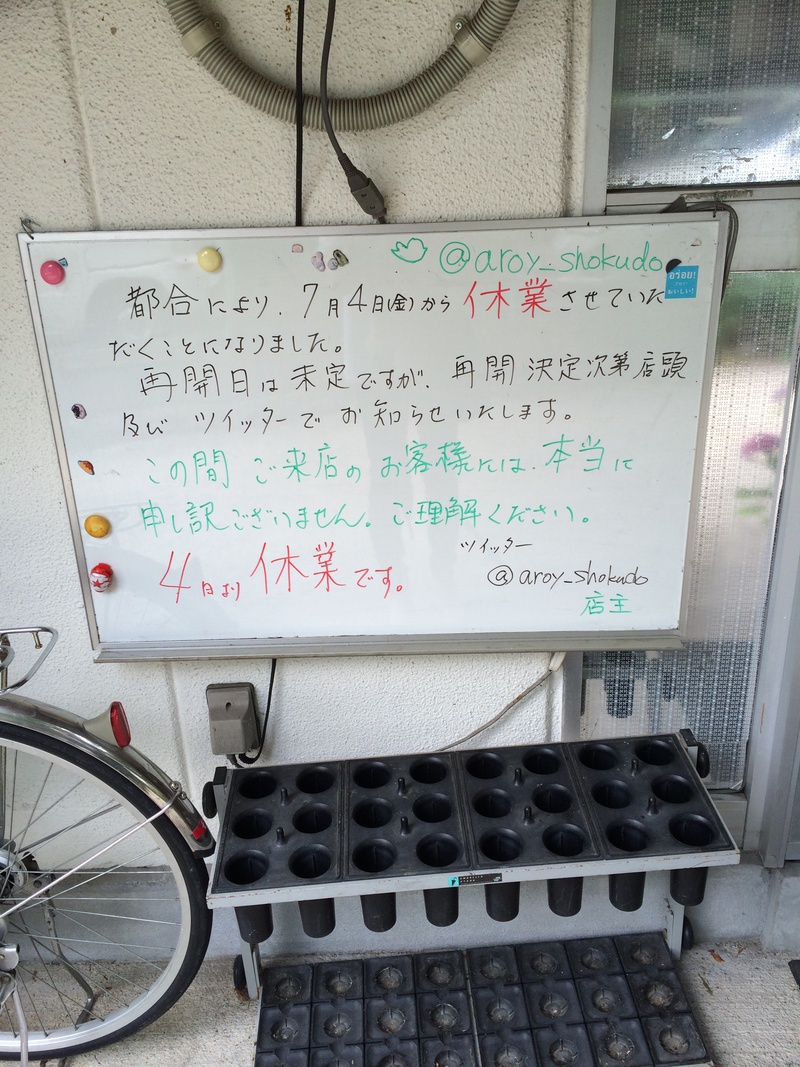 @aroy_shokudo
อร่อย!
おいしい!
都合により、7月4日(金)から休業させていた
だくことになりました。
再開日は未定ですが、再開決定次第店頭
及び ツイッターで お知らせいたします。
この間 ご来店の お客様には、本当に
申し訳ございません。ご理解ください。
4日より 休業です。
ツイッター
@aroy_shokudo
店主